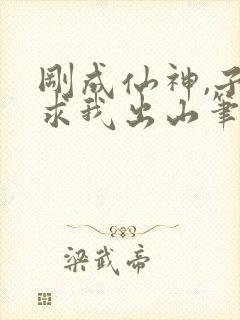 剛成仙神,子
求我出山筆
梁武帝